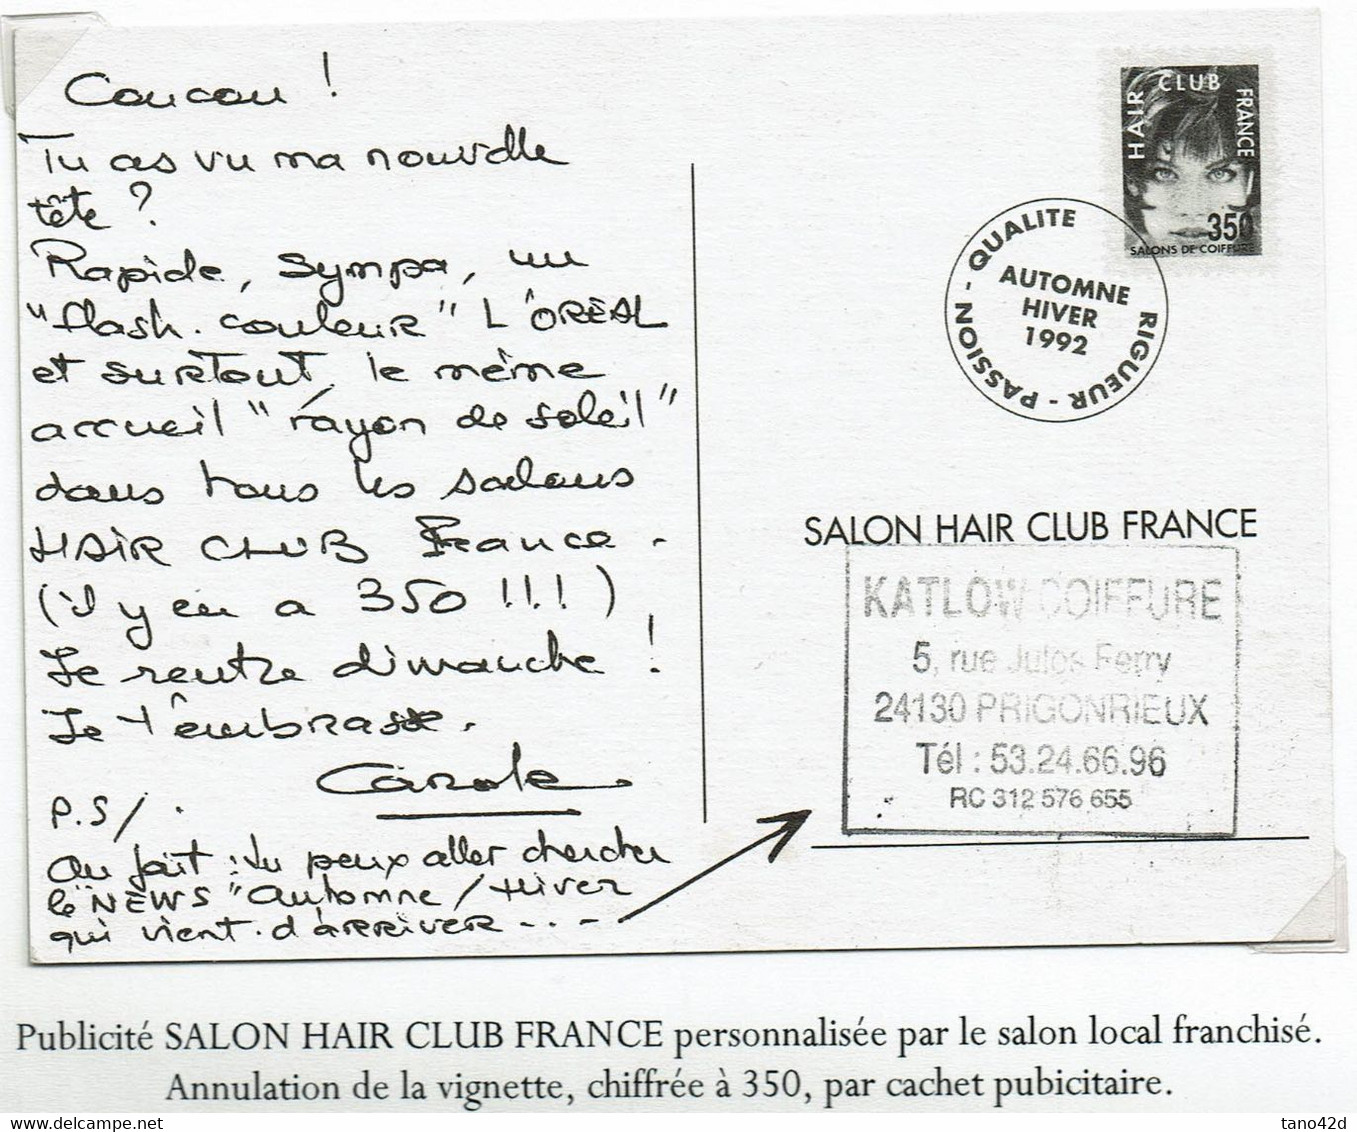 Coucou !
Tu as vu ma nouvelle
tête ?
Rapide, sympa, un
"flash. couleur" L'ORÉAL
et surtout, le même
accueil "rayon de soleil"
dans tous les salons
HAIR CLUB France -
(il y en a 350 !!!)
Je rentre dimanche !
Je t'embrasse.
Carole
P.S/.
Au fait : tu peux aller chercher
le "NEWS" Automne/Hiver
qui vient d'arriver...-
HAIR CLUB FRANCE
350
SALONS DE COIFFURE
QUALITE RIGUEUR - PASSION -
AUTOMNE
HIVER
1992
SALON HAIR CLUB FRANCE
KATLOW COIFFURE
5, rue Jules Ferry
24130 PRIGONRIEUX
Tél : 53.24.66.96
RC 312 576 655
Publicité SALON HAIR CLUB FRANCE personnalisée par le salon local franchisé.
Annulation de la vignette, chiffrée à 350, par cachet pubicitaire.
delcampe.net
tano42d